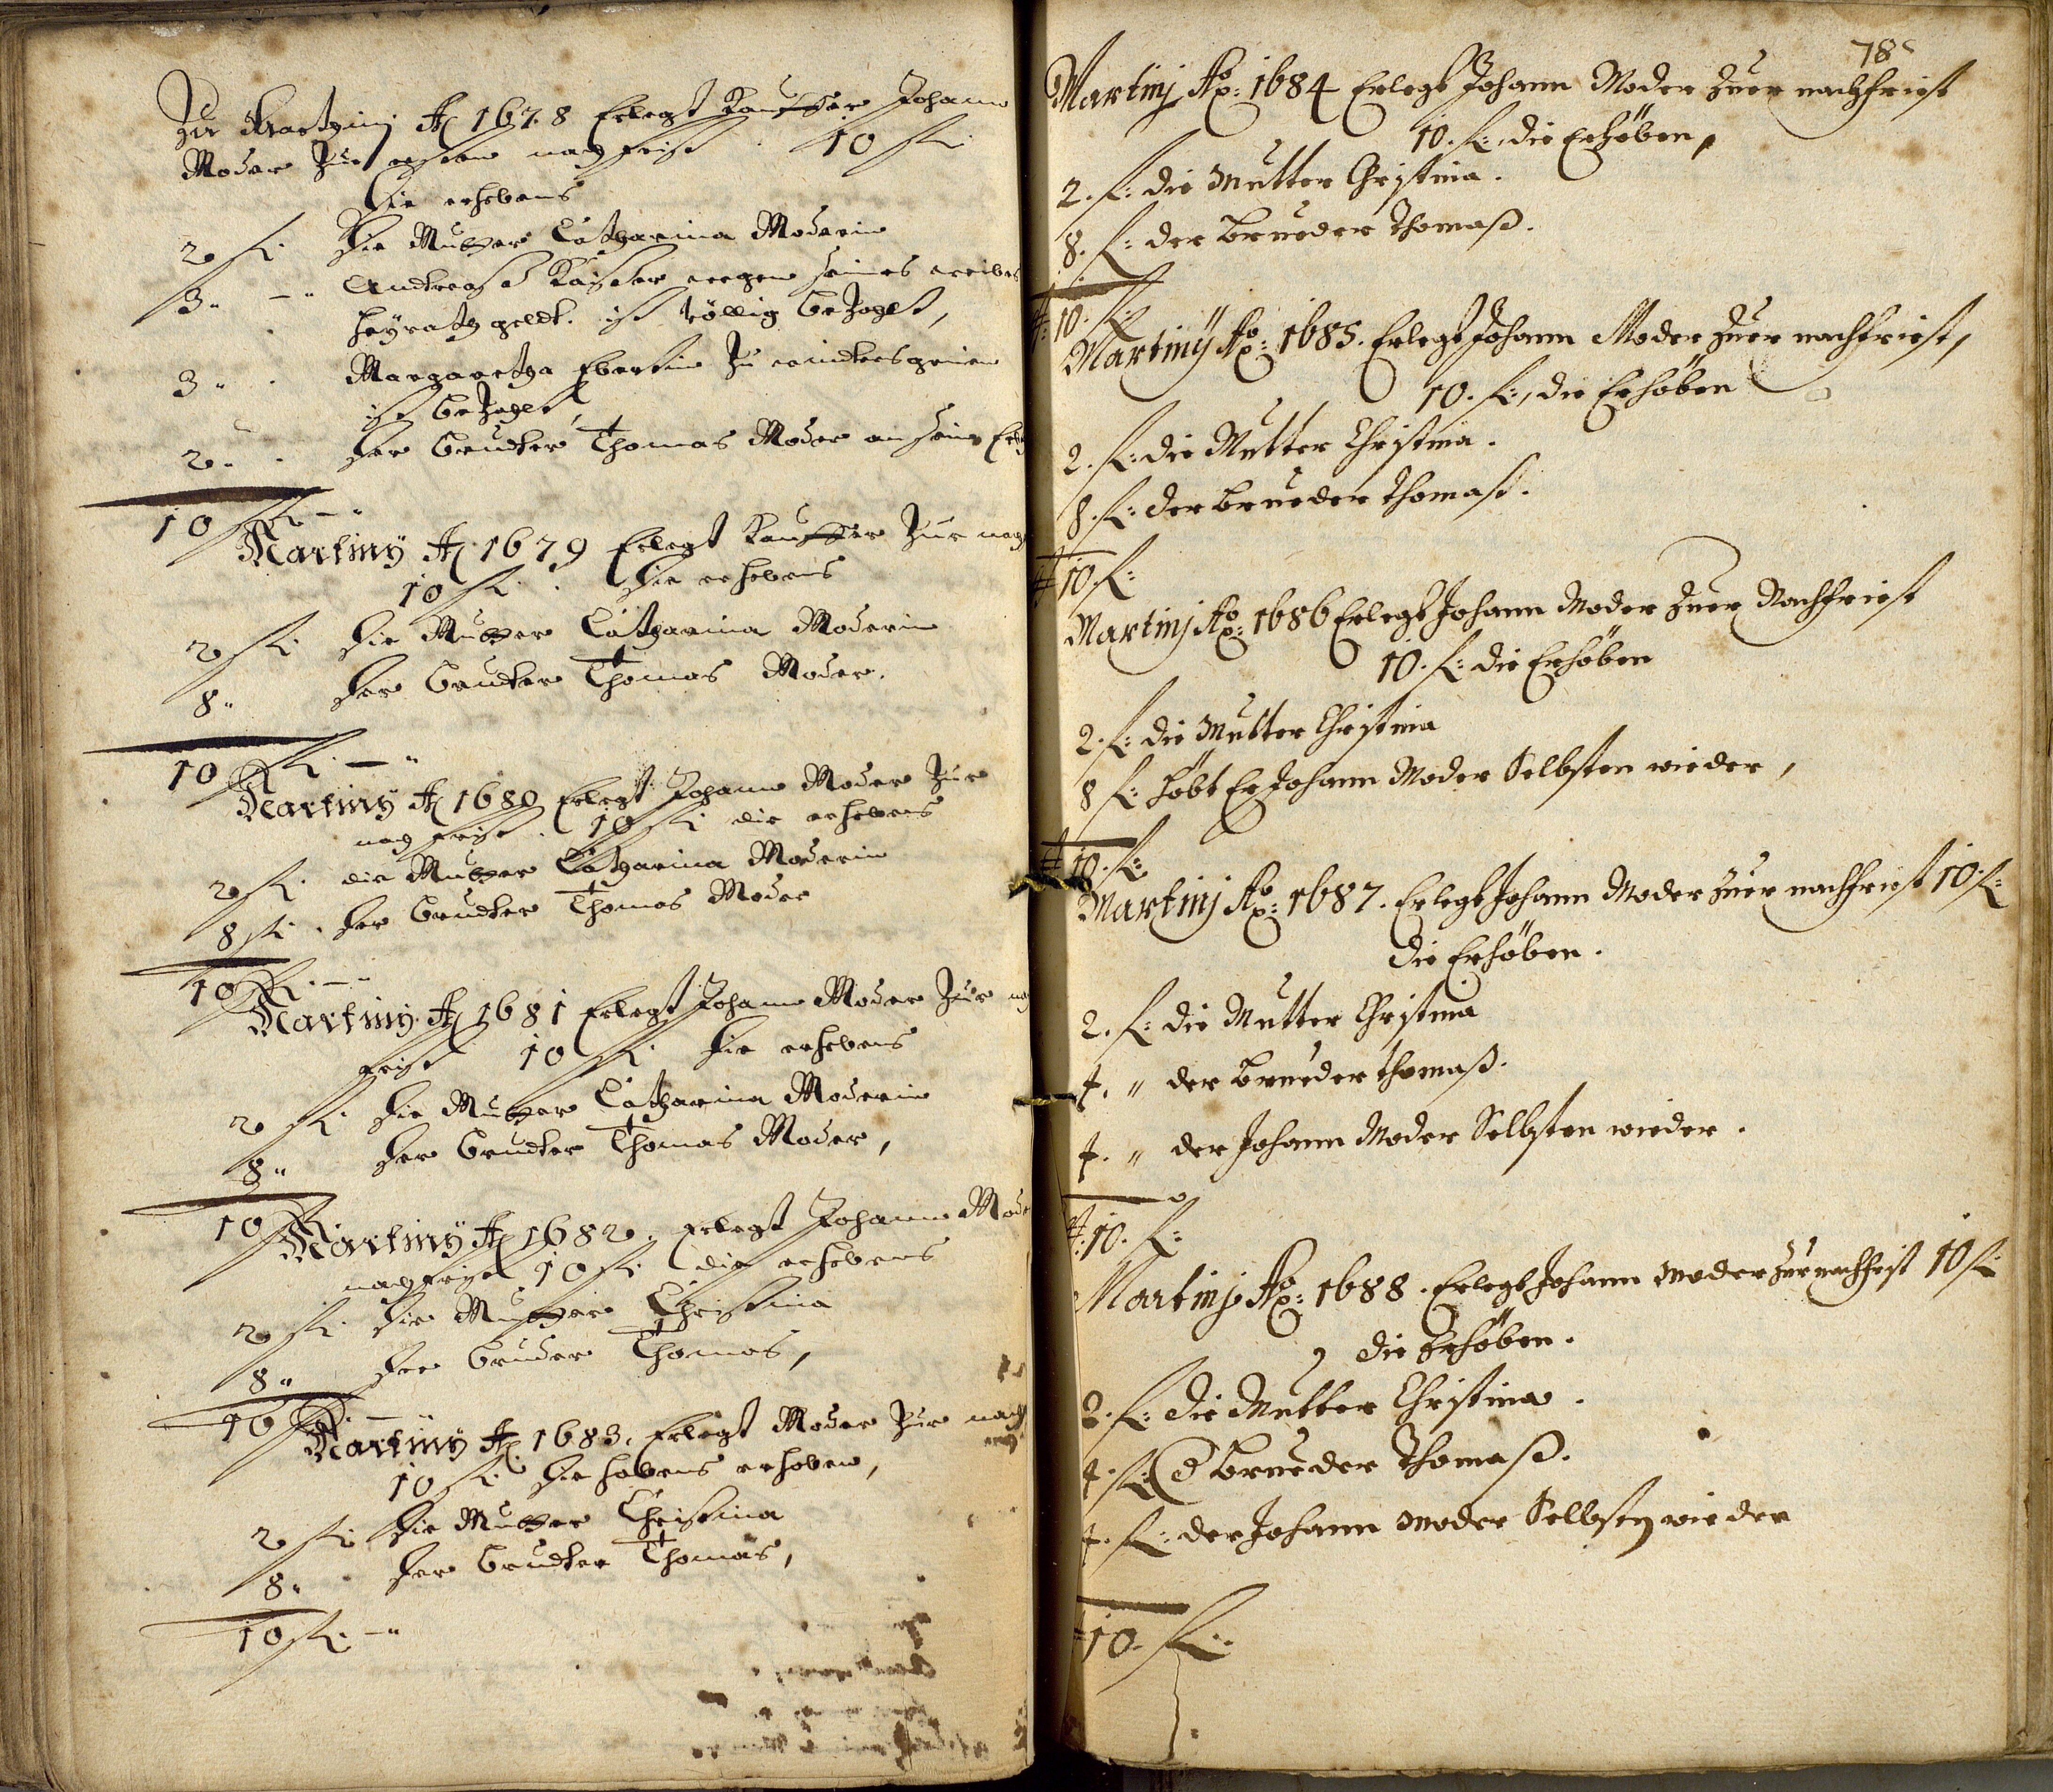 Zu Martziny Ao 1678 Erlegt Kauffer Johann
Moder Zur ersten nachfrist 10 fl.
die erhebens
2 fl. die Mutter Catharina Moderin
3 " — " Andreas Kaiser wegen seines weibes
heyrath geldt. ist völlig bezahlt,
3 " Margaretha Ebertin Zu
ist bezahlt,
2 " der bruder Thomas Moder an sein
10 fl. — "
Martiny Ao 1679 Erlegt Kauffer Zur
10 fl. die erhebens
2 fl. die Mutter Catharina Moderin
8 " der bruder Thomas Moder.
10 fl. — "
Martiny Ao 1680 Erlegt Johann Moder Zur
nachfrist. 10 fl. die erhebens
2 fl. die Mutter Catharina Moderin
8 fl. der bruder Thomas Moder
10 fl. — "
Martiny Ao 1681 Erlegt Johann Moder Zur
frist 10 fl. die erhebens
2 fl. die Mutter Catharina Moderin
8 " der bruder Thomas Moder,
10 fl.
Martiny Ao 1682. Erlegt Johann
nachfrist 10 fl. die erhebens
2 fl. die Mutter Christina
8 " der bruder Thomas,
10 fl. — "
Martiny Ao 1683. Erlegt Moder Zur nach
10 fl. die habens erhoben,
2 fl. die Mutter Christina
8 " der bruder Thomas,
10 fl. — "
78
Martinj Ao: 1684 Erlegt Johann Moder Zuer nachfrist
10. fl: die Erhöben,
2. fl: die Mutter Christina.
8. fl: der brueder Thomaß.
10. fl:
Martinÿ Ao: 1685. Erlegt Johann Moder Zuer nachfrist,
10. fl:, die Erhöben
2. fl: die Mutter Christina.
8. fl: der brueder Thomaß.
10. fl:
Martinj Ao: 1686 Erlegt Johann Moder Zuer Nachfrist
10. fl: die Erhöben
2. fl: die Mutter Christina
8 fl: höbt Er Johann Moder Selbsten wieder,
10. fl:
Martinj Ao: 1687. Erlegt Johann Moder Zuer nachfrist 10. fl:
die Erhöben.
2. fl: die Mutter Christina
4. " der brueder Thomaß.
4. " der Johann Moder Selbsten wieder.
10. fl:
Martinj Ao: 1688. Erlegt Johann Moder Zur nachfrist 10 fl:
die Erhöben.
2. fl: die Mutter Christina.
4. fl: d brueder Thomaß.
4. fl: der Johann Moder Selbsten wieder
10. fl: